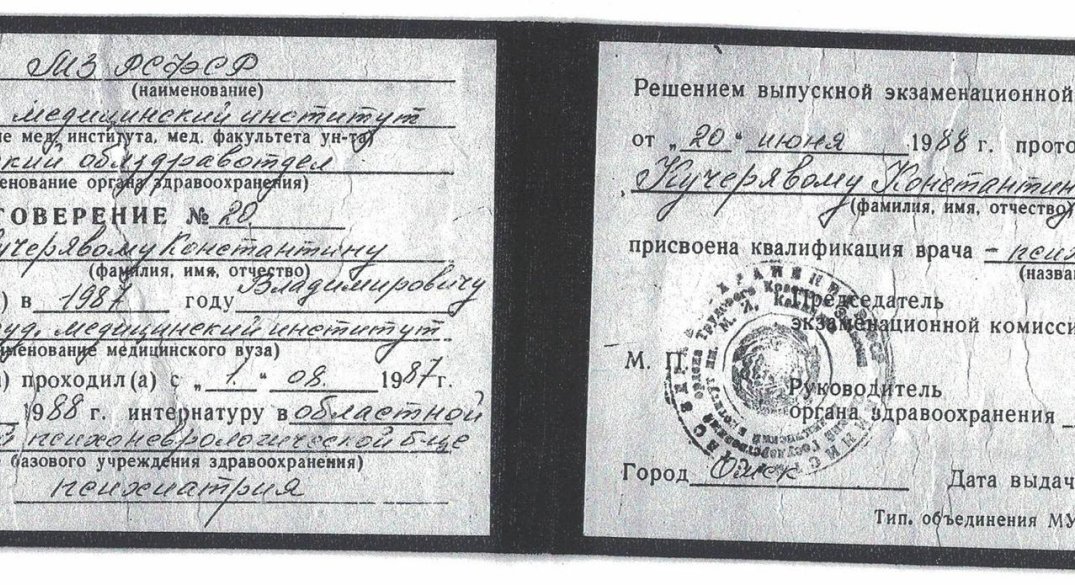 МЗ РСФСР
(наименование)
медицинский институт
ие мед. института, мед. факультета ун-та)
ский облздравотдел
менование органа здравоохранения)
ТОВЕРЕНИЕ № 20
учерявому Константину
(фамилия, имя, отчество)
) в 1987 году Владимировичу
уд. медицинский институт
именование медицинского вуза)
) проходил(а) с „ 1. " 08. 1987 г.
1988 г. интернатуру в областной
й психоневрологической б-це
базового учреждения здравоохранения)
психиатрия
Решением выпускной экзаменационной
от „ 20 " июня 1988 г. прото
Кучерявому Константин
(фамилия, имя, отчество)
присвоена квалификация врача – псих
(назва
Председатель
экзаменационной комисси
М. П.
Руководитель
органа здравоохранения
Город Омск Дата выдач
Тип. объединения МУ